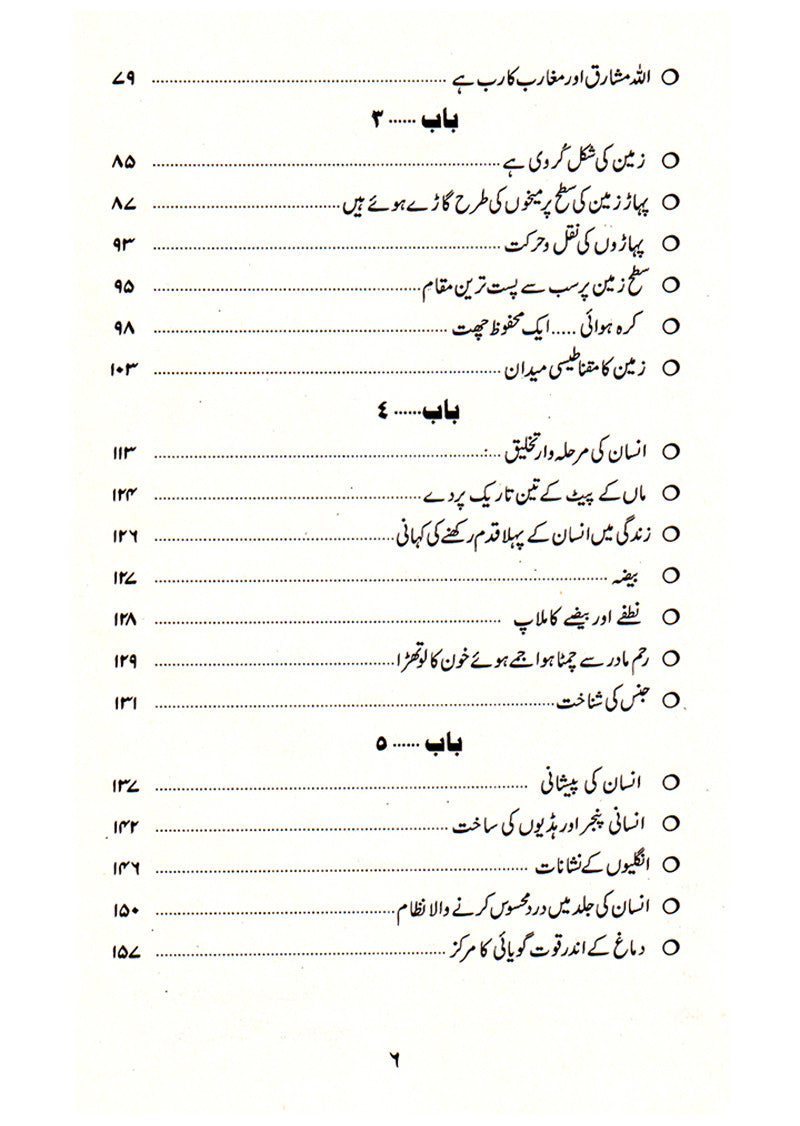 ○ اللہ مشارق اور مغارب کا رب ہے ........ ۷۹
باب ...... ۳
○ زمین کی شکل کُروی ہے ........ ۸۵
○ پہاڑ زمین کی سطح پر میخوں کی طرح گاڑے ہوئے ہیں ........ ۸۷
○ پہاڑوں کی نقل و حرکت ........ ۹۳
○ سطح زمین پر سب سے پست ترین مقام ........ ۹۵
○ کرہ ہوائی ..... ایک محفوظ چھت ........ ۹۸
○ زمین کا مقناطیسی میدان ........ ۱۰۳
باب ...... ٤
○ انسان کی مرحلہ وار تخلیق ........ ۱۱۳
○ ماں کے پیٹ کے تین تاریک پردے ........ ۱۲۴
○ زندگی میں انسان کے پہلا قدم رکھنے کی کہانی ........ ۱۲۶
○ بیضہ ........ ۱۲۷
○ نطفے اور بیضے کا ملاپ ........ ۱۲۸
○ رحم مادر سے چمٹا ہوا جمے ہوئے خون کا لوتھڑا ........ ۱۲۹
○ جنس کی شناخت ........ ۱۳۱
باب ...... ۵
○ انسان کی پیشانی ........ ۱۳۷
○ انسانی پنجر اور ہڈیوں کی ساخت ........ ۱۴۲
○ انگلیوں کے نشانات ........ ۱۴۶
○ انسان کی جلد میں درد محسوس کرنے والا نظام ........ ۱۵۰
○ دماغ کے اندر قوت گویائی کا مرکز ........ ۱۵۷
۶